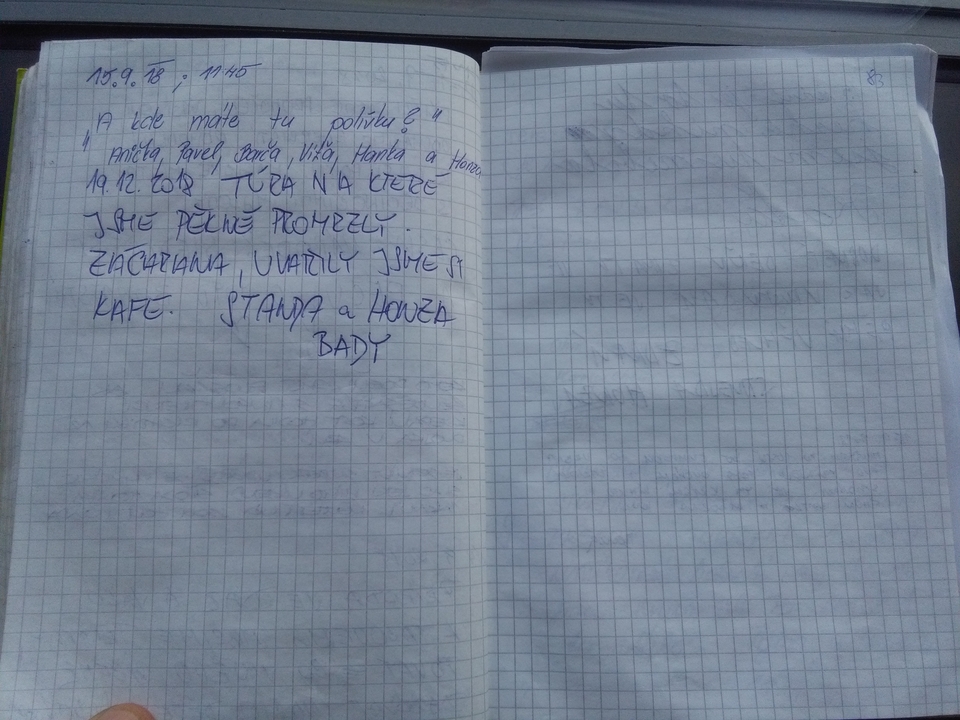 15.9.18 ; 11:45
„A kde máte tu polívku?"
Anička, Pavel, Barča, Víťa, Hanka a Honza
19.12.2018 TÚRA NA KTERÉ
JSME PĚKNĚ PROMRZLY.
ZAČARANA, UVAŘILY JSME SI
KAFE. STANDA a HONZA
BADY
83